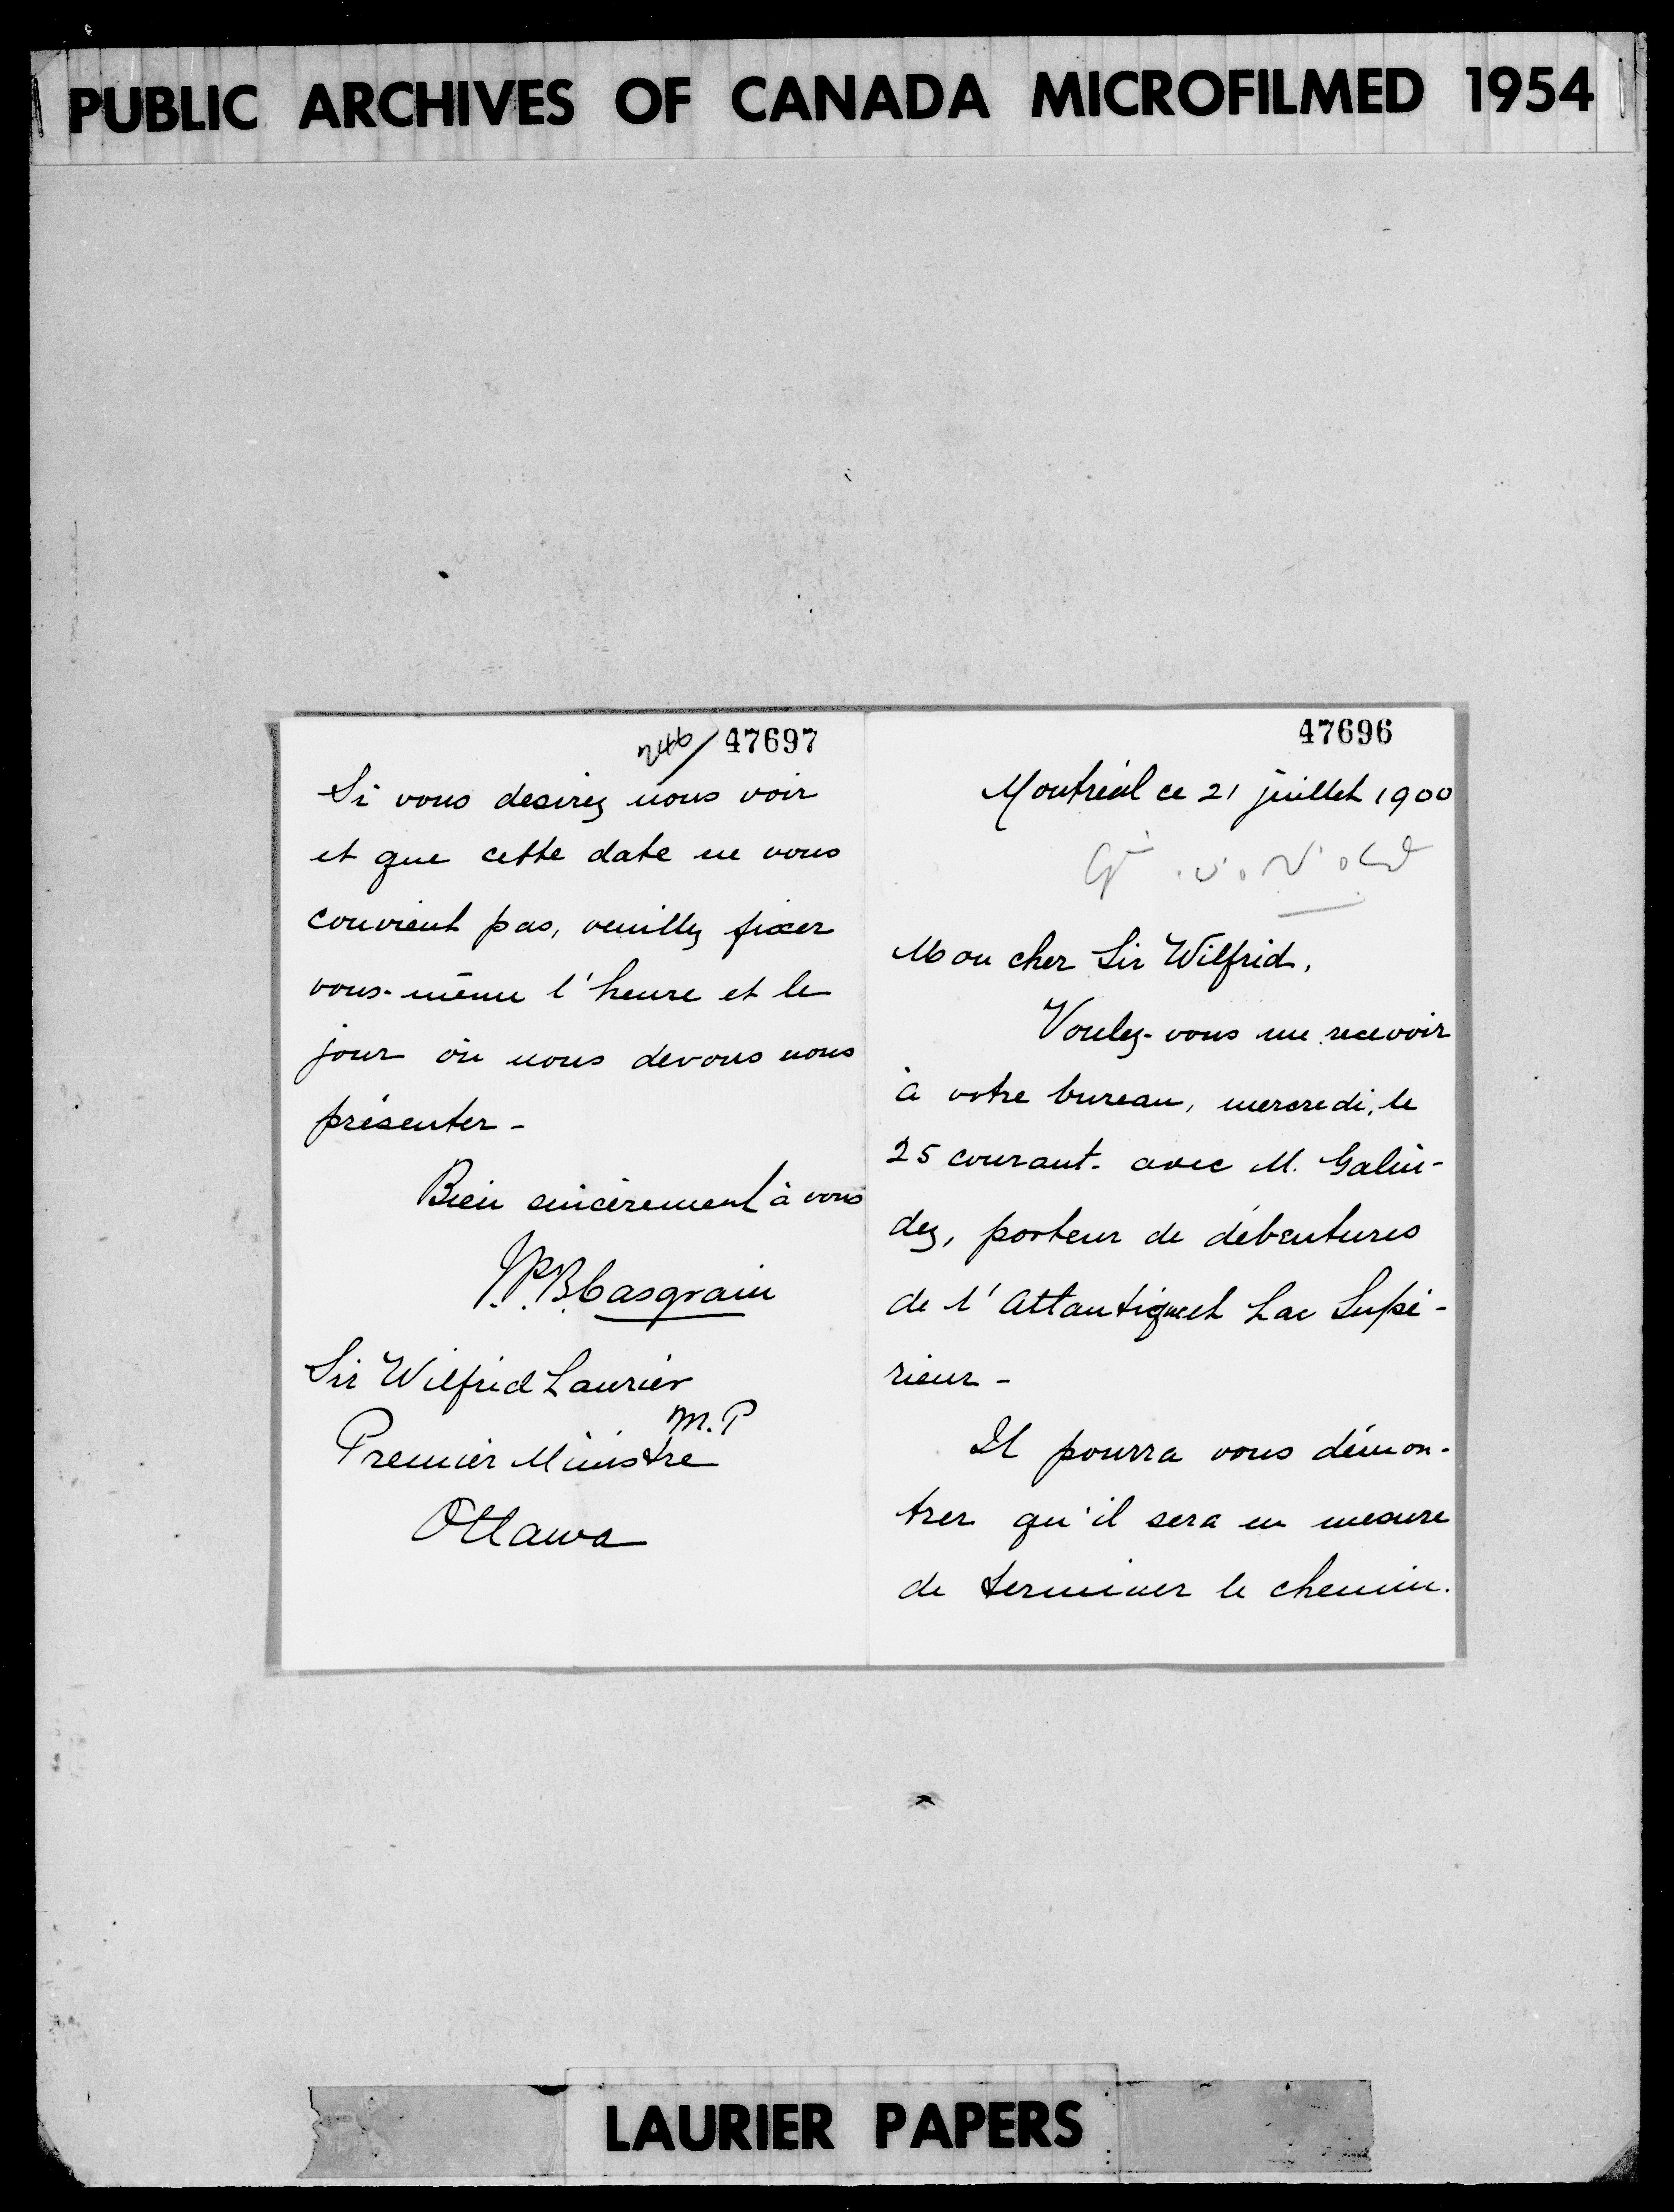 PUBLIC ARCHIVES OF CANADA MICROFILMED 1954
47696
Montréal ce 21 juillet 1900
Mon cher Sir Wilfrid,
Voulez-vous me recevoir
à votre bureau, mercredi, le
25 courant - avec M. Galin-
dez, porteur de débentures
de l'Atlantique et Lac Supé-
rieur -
Il pourra vous démon-
trer qu'il sera en mesure
de terminer le chemin.
746/ 47697
Si vous desirez nous voir
et que cette date ne vous
convient pas, veuillez fixer
vous-même l'heure et le
jour où nous devons nous
présenter -
Bien sincèrement à vous
J.P.B. Casgrain
Sir Wilfrid Laurier
M.P
Premier Ministre
Ottawa
LAURIER PAPERS